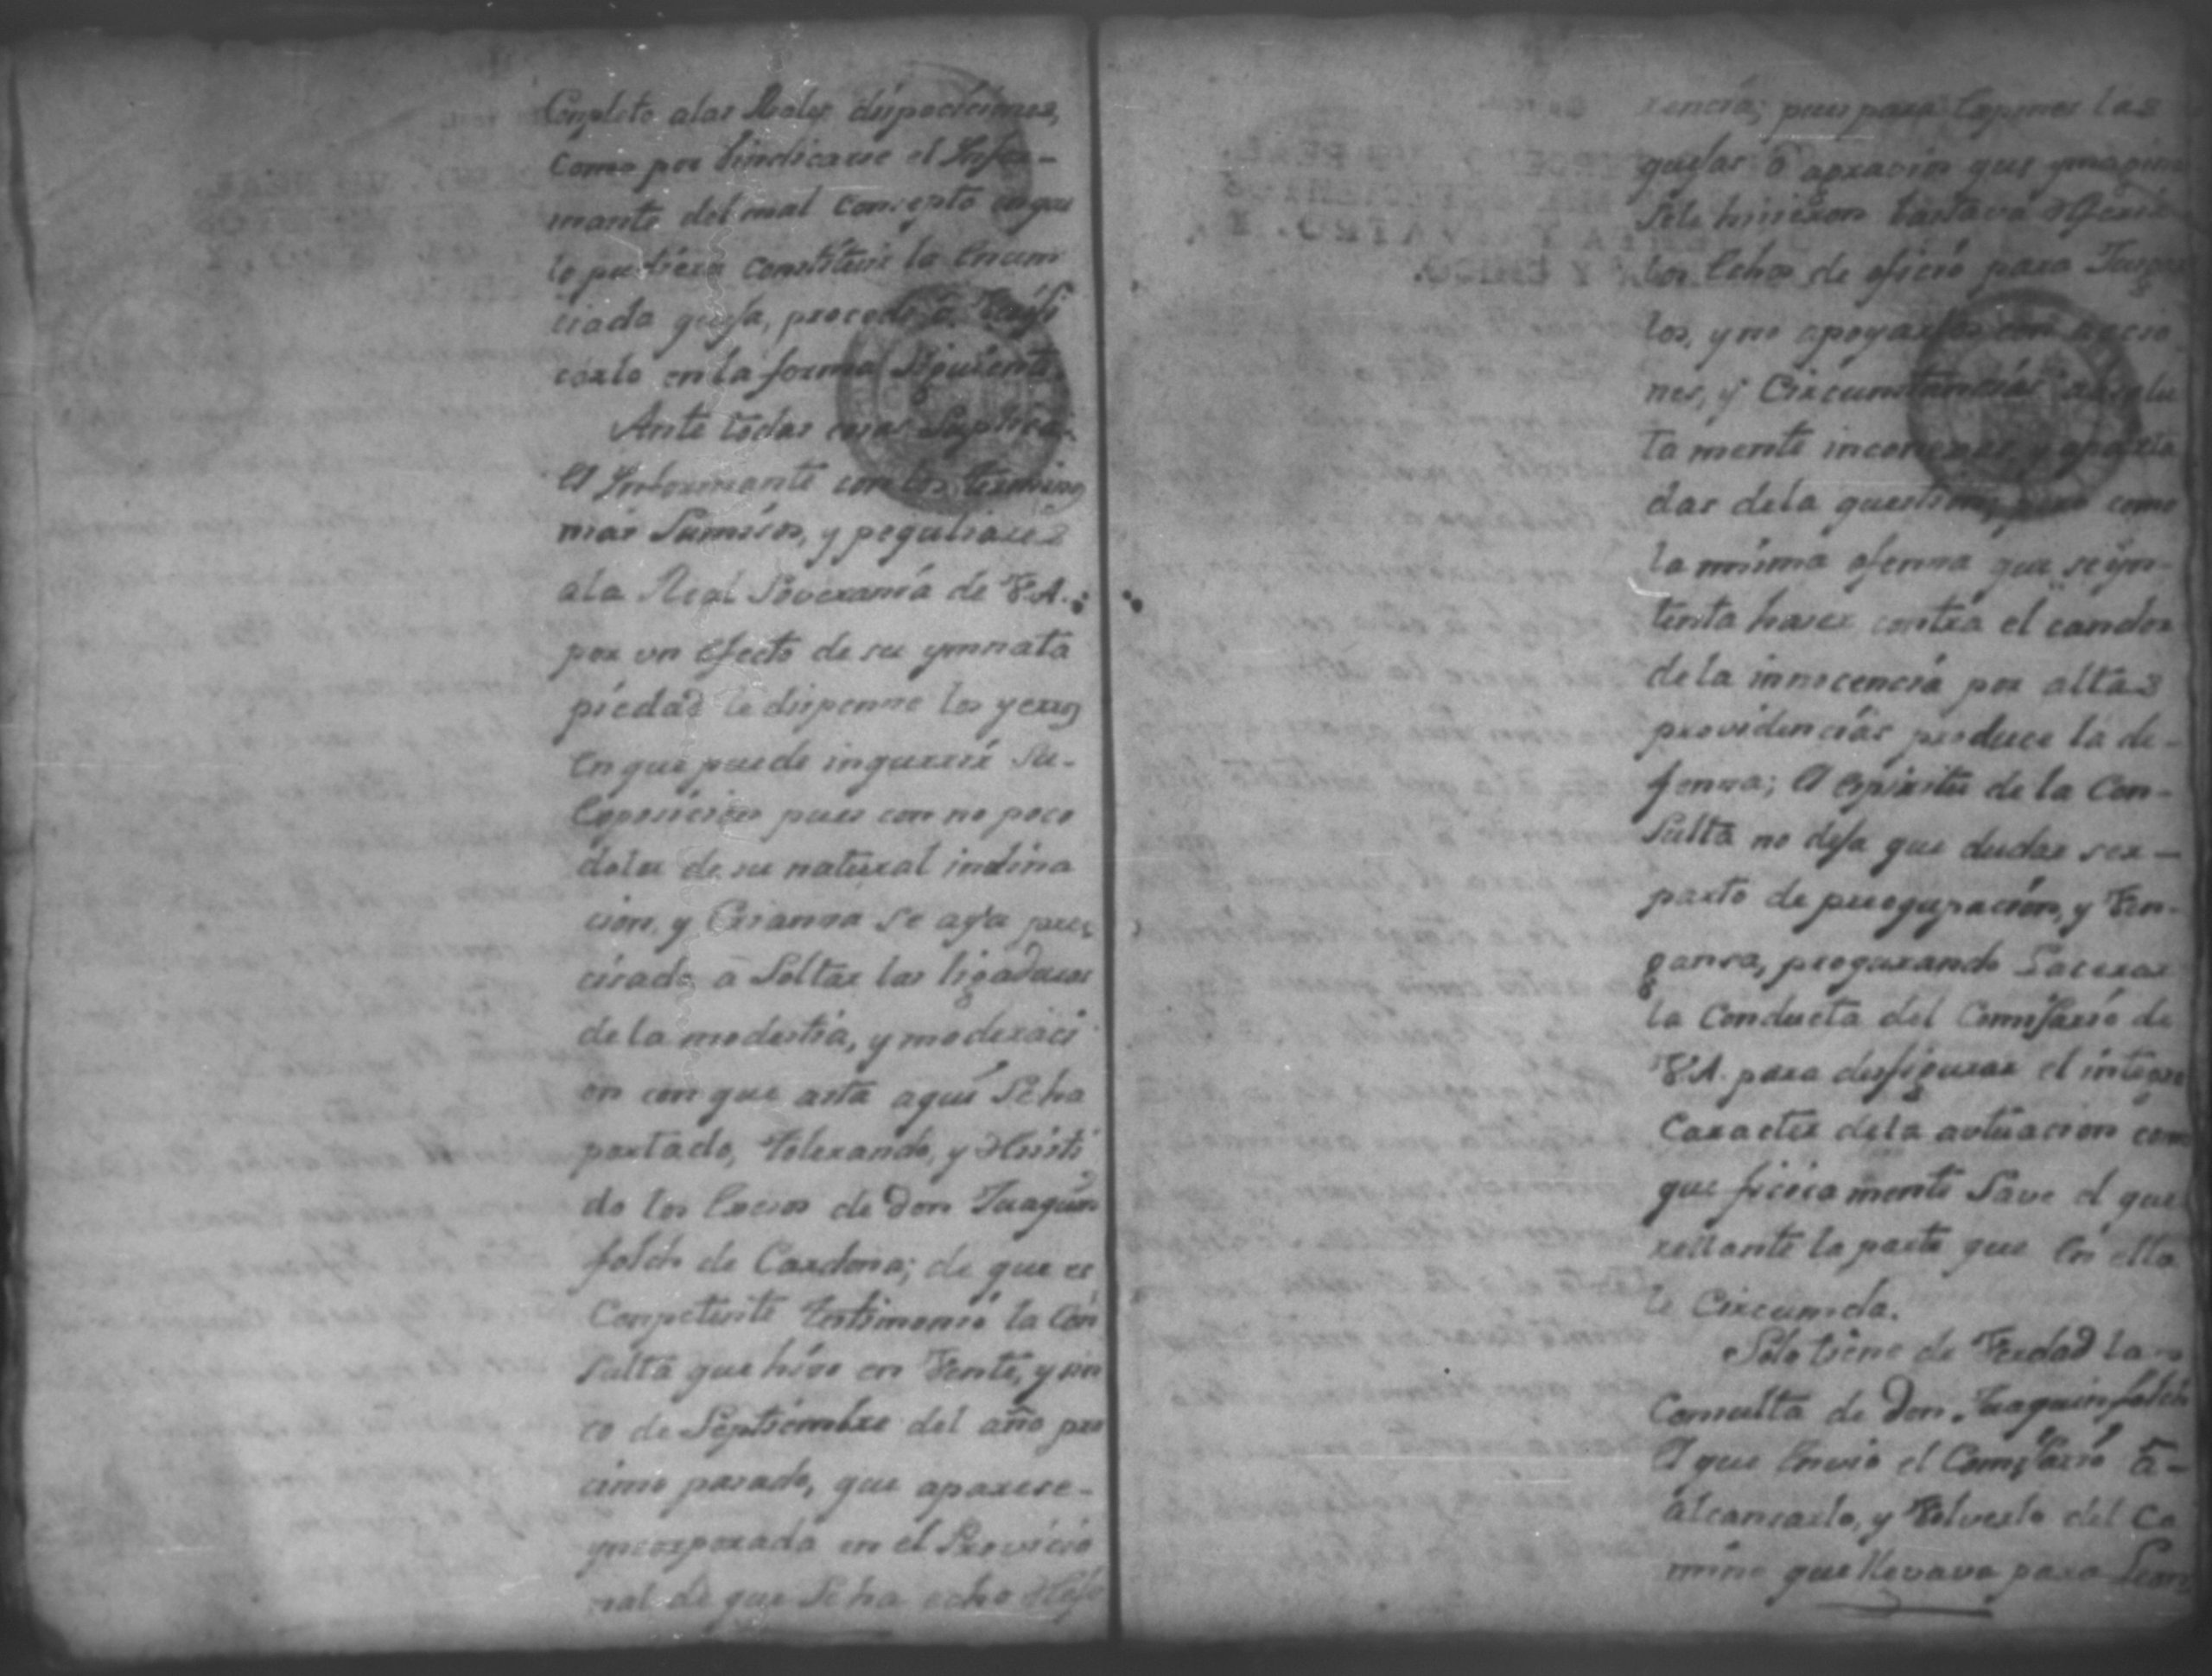 Conpleto alas Reales dispociciones,
como por bindicarse el Infor-
mante del mal consepto enque
lo pudiera constituir la enun
ciada quefa, procede a
carlo en la forma siguiente.
Ante todas cosas Suplica
el Informante con los terminos
mas Sumisos, y peguliares
ala Real Soverania de V.A.
por un efecto de su ymnata
piedad le dispenne los yerros
en que puede ingurrir su-
Exposicion pues con no poco
dolor de su natural indina
cion, y Crianna se aya prec
cisado a Soltar las ligaduras
de la modestia, y moderaci
on con que asta aqui Seha
portado, tolerando, y
do los de Don Juaquin
folch de Cardona; de que es
Conpetente testimonio la Con
sulta que hiso en Vente, y sin
co de Septiembre del año pro
cimo pasado, que aparese-
yncorporada en el Provicio
nal de que Seha echo
rencia; pues para exponer las
quefas o agravios que ymagina
Sele hisieron bastava
los echos de oficio para
los, y no apoyarlos con
nes, y Circunstancias absolu
ta mente inconexas, y
das dela question, pero como
la misma ofenna que se yn-
tenta haser contra el candor
de la innocencia por altas
providencias produce la de-
fenna; el espiritu de la Con-
Sulta no defa que dudar ser-
parto de preogupacion, y Ven-
gansa, progurando Lacerar
la Conducta del Comisario de
V.A. para desfigurar el integro
Caracter dela actuacion con
que ficicamente Save el que
rellante la parte que en ella
le Circunda.
Solo tiene de Verdad la
Consulta de Don Juaquin folch
el que envio el Comisario a-
alcansarlo, y Volverlo del Ca
mino que llevava para